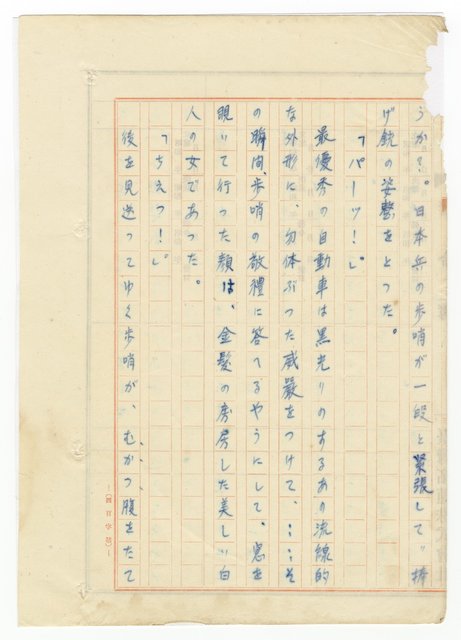 うか？。日本兵の歩哨が一段と緊張して、捧
げ銃の姿勢をとった。
「パーッ！」
最優秀の自動車は黒光りのするあの流線的
な外形に、勿体ぶった威嚴をつけて、……そ
の瞬間、歩哨の敬禮に答へるやうにして、窓を
覗いて行った顔は、金髪の房房した美しい白
人の女であった。
「ちえっ！」
後を見送ってゆく歩哨が、むかっ腹をたて
（四百字詰）